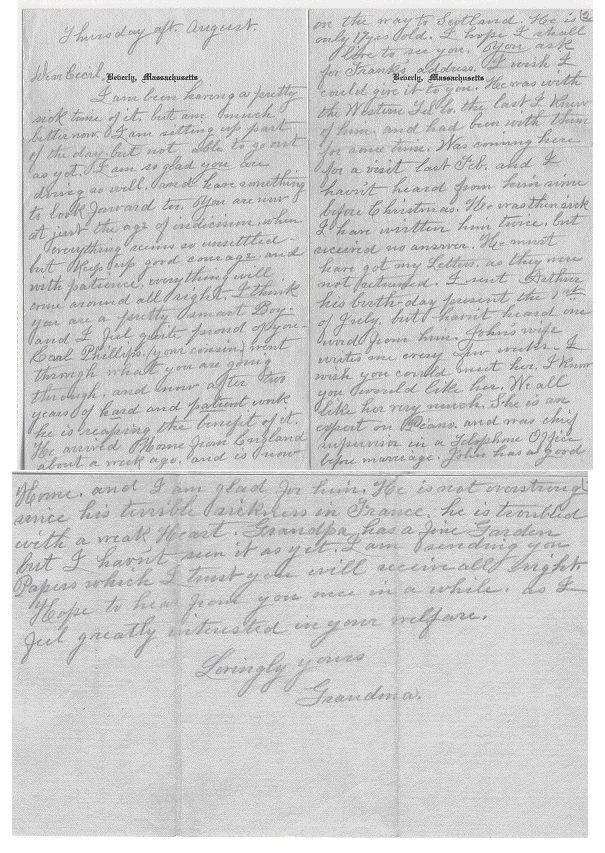 Thursday aft. August.
Beverly, Massachusetts
Dear Cecil,
I am been having a pretty
sick time of it, but am much
better now. I am sitting up part
of the day, but not able to go out
as yet. I am so glad you are
doing so well, and have something
to look forward to. You are now
at just the age of indicision, when
everything seems so unsettled-
but keep up good courage and
with patience, everything will
come around all right. I think
you are a pretty smart Boy-
and I feel quite proud of you-
Carl Phillips, (your cousin) went
through what you are going
through, and now after two
years of hard and patient work
he is reaping the benefit of it.
He arrived Home from England
about a week ago, and is now
2
on the way to Scotland. He is
only 17 yrs old. I hope I shall
live to see you. You ask
for Frank's address. I wish I
Beverly, Massachusetts
could give it to you. He was with
the Western Tel Co. the last I knew
of him, and had been with them
for some time. Was coming here
for a visit last Feb. and I
havn't heard from him since
before Christmas. He was then sick
I have written him twice, but
received no answer. He must
have got my Letters, as they were
not returned. I sent Arthur
his birth-day present the 1st
of July, but havn't heard one
word from him. John's wife
writes me every few weeks- I
wish you could meet her. I know
you would like her. We all
like her very much. She is an
expert on Piano, and was chief
supervisor in a Telephone Office
before marriage. John has a good
Home, and I am glad for him. He is not overstrong
since his terrible sickness in France, he is troubled
with a weak Heart. Grandpa has a fine Garden
but I havn't seen it as yet. I am sending you
Papers which I trust you will receive all right.
Hope to hear from you once in a while, as I
feel greatly interested in your welfare.
Lovingly yours
Grandma.